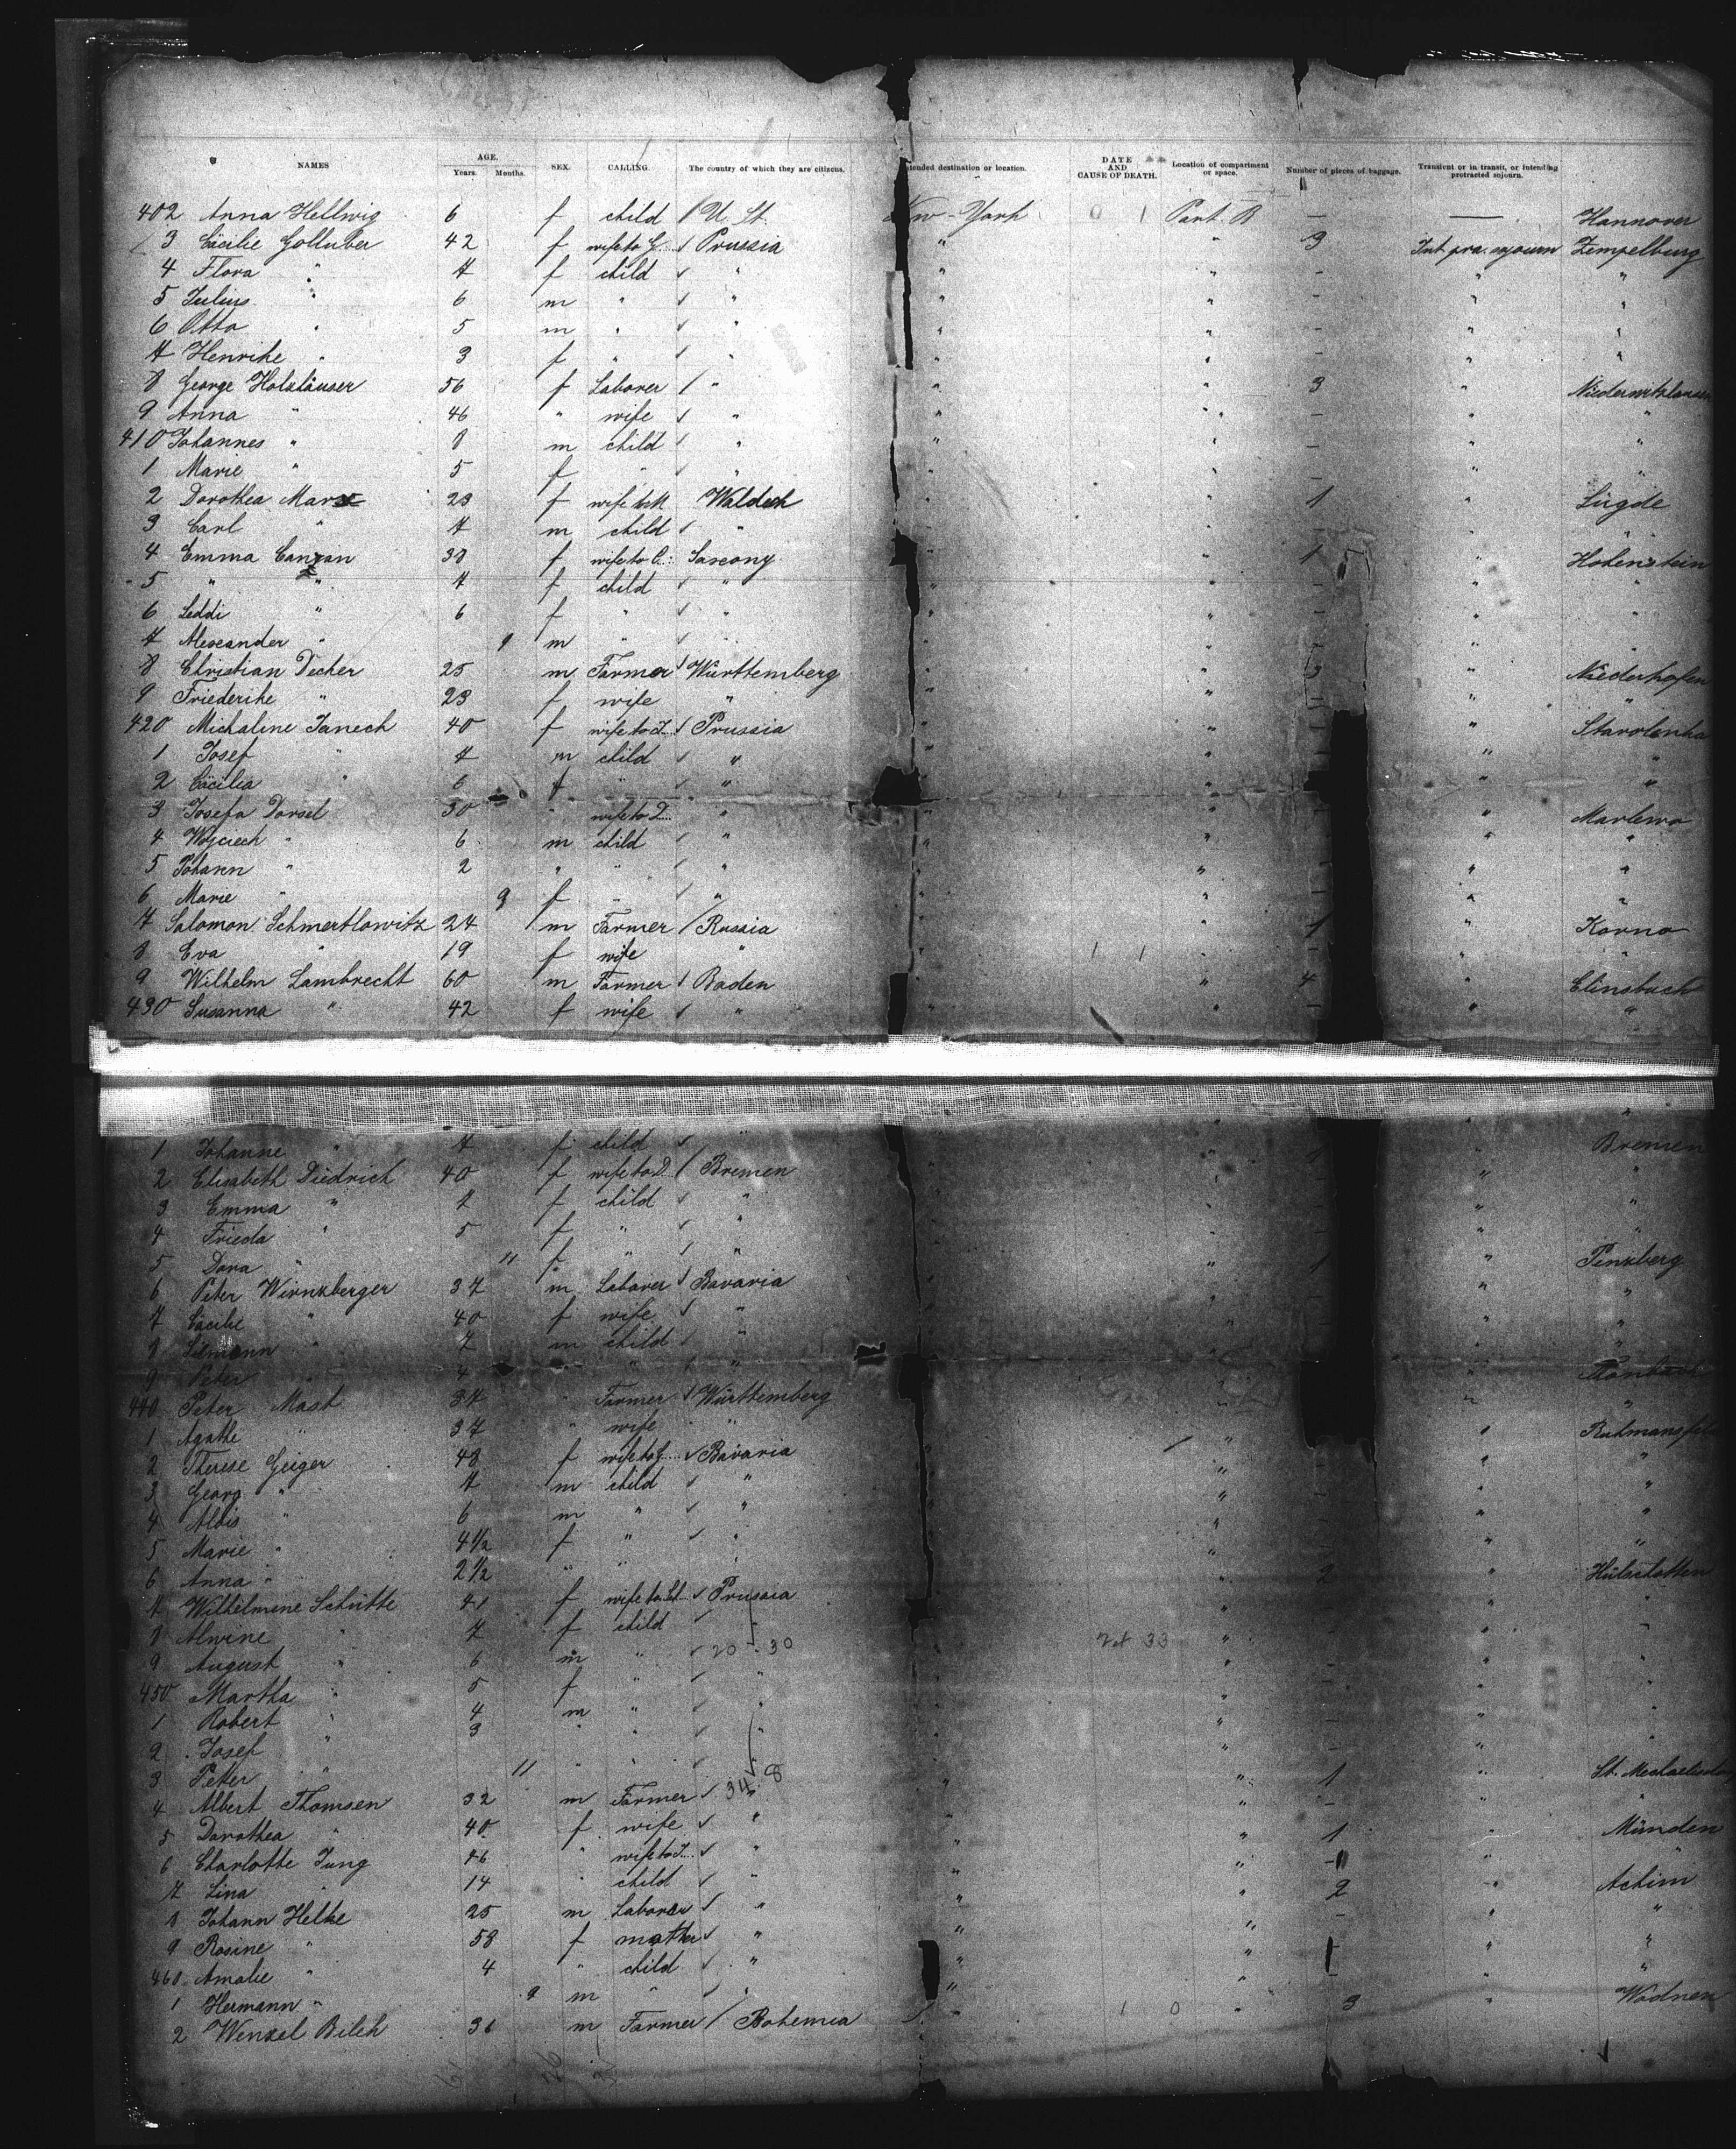 NAMES AGE. Years. Months. SEX. CALLING. The country of which they are citizens. Intended destination or location. DATE AND CAUSE OF DEATH. Location of compartment or space. Number of pieces of baggage. Transient or in transit, or intending protracted sojourn.
402 Anna Hellwig 6 f child / U. St. New-York 0 1 Part. B — — Hannover
3 Cäcilie Golluber 42 f wife to G.... √ Prussia " " 3 Int. pra. sojourn Zempelburg
4 Flora " 7 f child √ " " " - " "
5 Julius " 6 m " √ " " " - " "
6 Otto " 5 m " √ " " " - " "
7 Henrike " 3 f " √ " " " - " "
8 George Holzläuser 56 f Laborer / " " " 3 "
9 Anna " 46 " wife √ " " " - " "
410 Johannes " 8 m child √ " " " - " "
1 Marie " 5 f " √ " " " - " "
2 Dorothea Marx 23 f wife to M Waldeck " " 1 " Lügde
3 Carl " 7 m child √ " " " - " "
4 Emma Canzan 38 f wife to C.. Saxony " " 1 " Hohenstein
5 " " 7 f child √ " " " " "
6 Leddi " 6 f " √ " " " - " "
7 Alexander " 9 m " √ " " " - " "
8 Christian Decher 25 m Farmer √ Württemberg " " 3 " Niederhofen
9 Friederike " 23 f wife " " " - " "
420 Michaline Janech 40 f wife to J... √ Prussia " " " Starolenka
1 Josef " 7 m child √ " " " " "
2 Cäcilia " 6 f " " " " " "
3 Josefa Dorsel 30 " wife to D.... " " " " Marlewo
4 Wojciech " 6 m child √ " " " " "
5 Johann " 2 " " √ " " " " "
6 Marie " 9 f " √ " " " " "
7 Salomon Schmertlowitz 24 m Farmer / Russia " " 1 " Kowno
8 Eva " 19 f wife " " 1 1 " " "
9 Wilhelm Lambrecht 60 m Farmer / Baden " " 4 " Elinsbach
430 Susanna " 42 f wife √ " " " - " "
1 Johanne " 7 f child √ " " " "
2 Elisabeth Diedrich 40 f wife to D. / Bremen " " 1 Bremen
3 Emma " 7 f child √ " " " " "
4 Frieda " 5 f " √ " " " " "
5 Dora " 11 f " √ " " " " "
6 Peter Wirnzberger 37 m Laborer √ Bavaria " 1 " Penzberg
7 Cäcilie " 40 f wife √ " " " "
8 " 7 m child √ " " " "
9 Peter " 4 " " √ " " " "
440 Peter Mast 34 " Farmer √ Württemberg " "
1 Agathe " 37 " wife " " " "
2 Therese Geiger 48 f wife to G.... √ Bavaria " " "
3 Georg " 7 m child √ " " " "
4 Alois " 6 m " √ " " " "
5 Marie " 4½ f " √ " " " "
6 Anna " 2½ " " " " " "
7 Wilhelmine Schütte 41 f wife to Sch... √ Prussia 2 "
8 Alwine " 7 f child √ " "
9 August " 6 m " √ 20 30 33 " "
450 Martha " 5 f " √ " " "
1 Robert " 4 m " √ " " "
2 Josef " 3 " " √ " " "
3 Peter " 11 " " √ " "
4 Albert Thomsen 32 m Farmer √ 34 8 " " 1 "
5 Dorothea " 40 f wife √ " " - "
6 Charlotte Jung 46 " wife to J.... √ " " " 1 " Münden
7 Lina " 14 " child √ " " " - "
8 Johann Helke 25 m Laborer √ " " " 2 " Achim
9 Rosine " 58 f mother √ " " " - " "
460 Amalie " 4 " child √ " " " - " "
1 Hermann " 9 m " √ " " " "
2 Wenzel Bilek 36 m Farmer / Bohemia " 1 0 " 3 " Wodnan